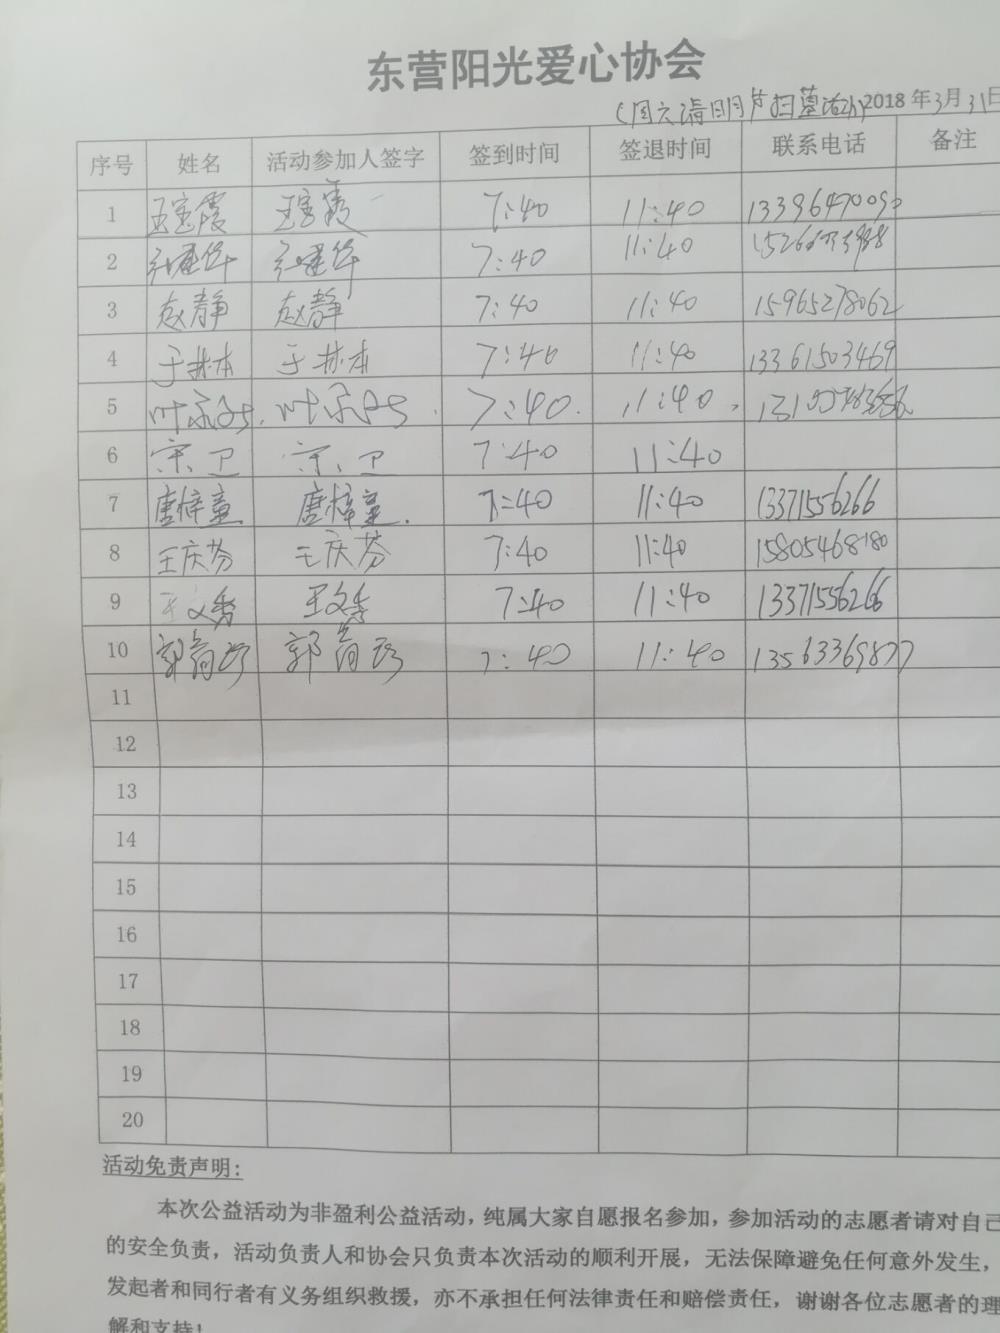 东营阳光爱心协会
(周六清明节扫墓活动) 2018年3月31日
序号 姓名 活动参加人签字 签到时间 签退时间 联系电话 备注
1 王宝霞 王宝霞 7:40 11:40 1339647009
2 7:40 11:40
3 赵静 赵静 7:40 11:40 15965278062
4 于林本 于林本 7:40 11:40 13361503469
5 7:40 11:40
6 宋卫 宋卫 7:40 11:40
7 唐梓童 唐梓童 7:40 11:40 13371556266
8 王庆芬 王庆芬 7:40 11:40 15805468180
9 王文秀 王文秀 7:40 11:40 13371556266
10 郭 郭 7:40 11:40 13563369877
11
12
13
14
15
16
17
18
19
20
活动免责声明:
本次公益活动为非盈利公益活动，纯属大家自愿报名参加，参加活动的志愿者请对自己
的安全负责，活动负责人和协会只负责本次活动的顺利开展，无法保障避免任何意外发生，
发起者和同行者有义务组织救援，亦不承担任何法律责任和赔偿责任，谢谢各位志愿者的理
解和支持!